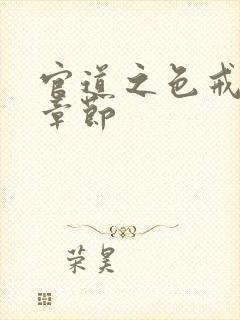 官道之色戒
章节
荣昊